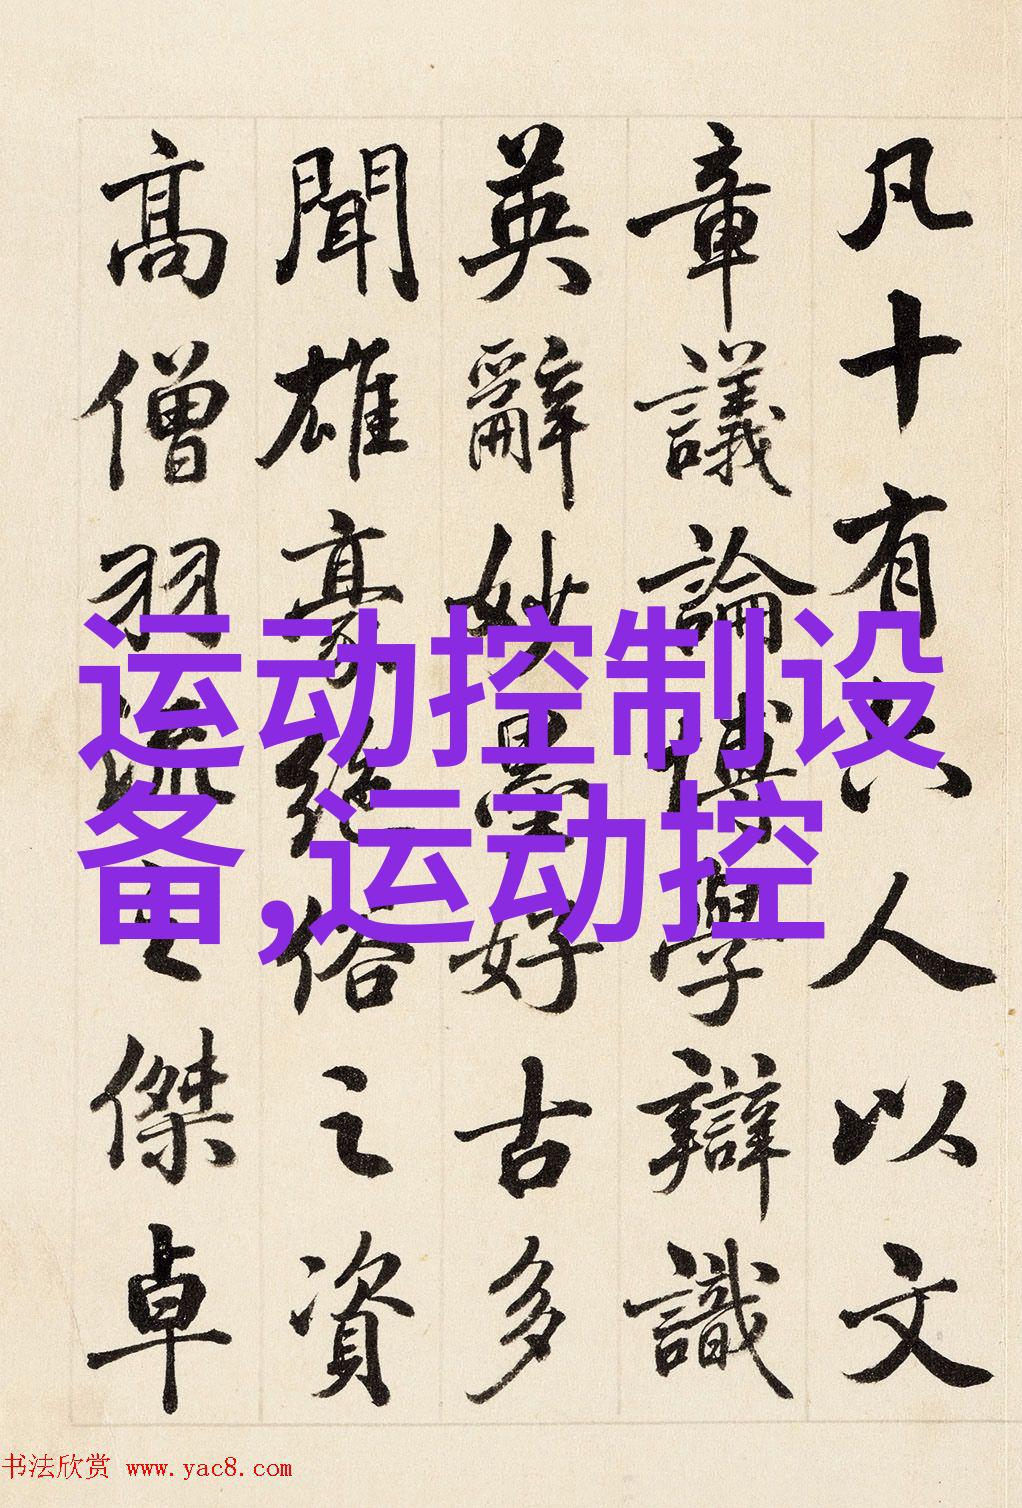 凡十有六人以文
章議論博學辯識
英辭妙墨好古多
聞雄豪絕俗之資
高僧羽流之傑卓
运动控制设
备,运动控
书法欣赏 www.yac8.com